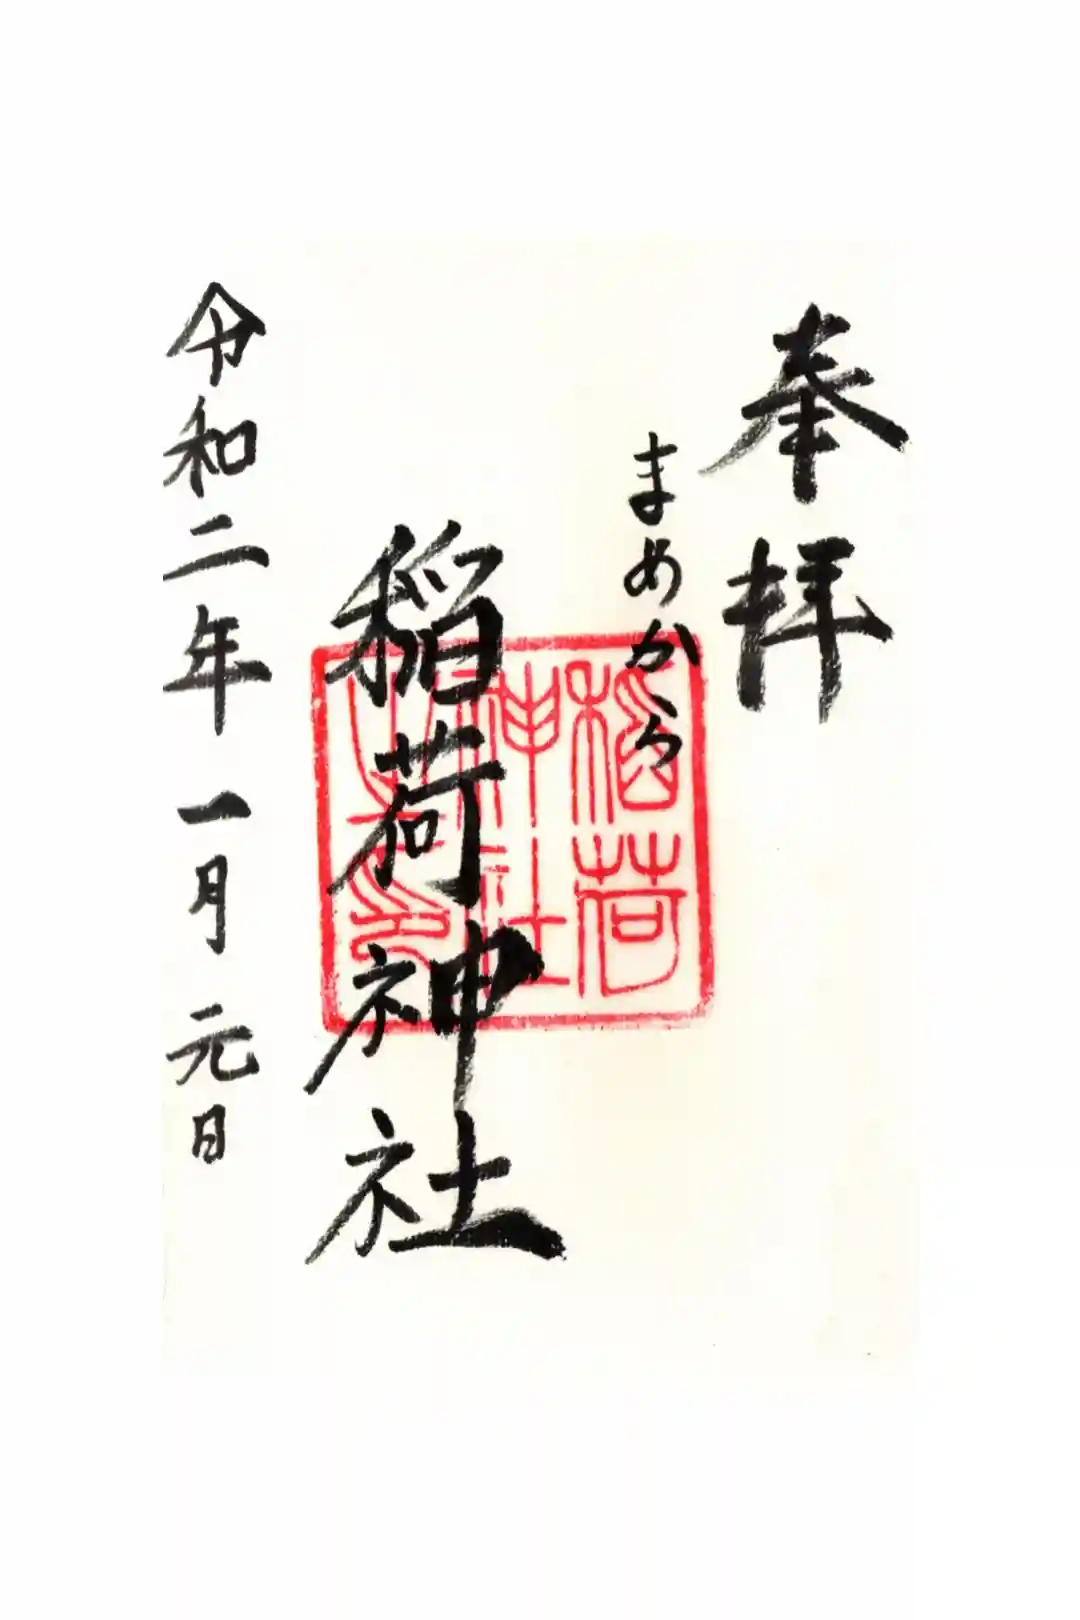 奉拝
まめから
稲荷神社
稲荷
神社
之印
令和二年 一月 元日